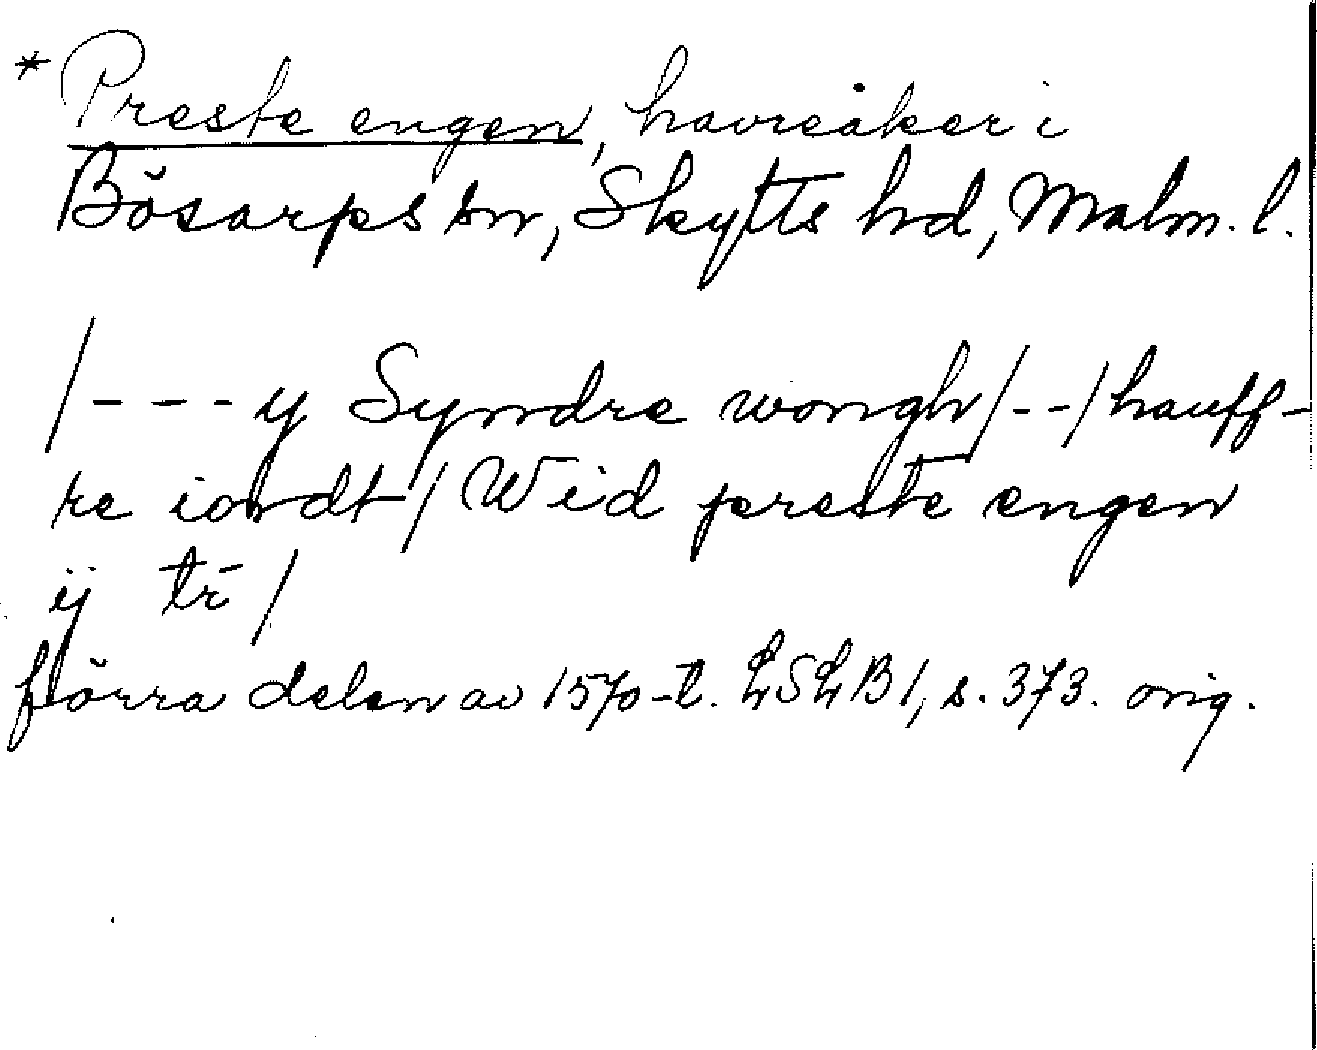 * Preste engen, havreåker i
Bösarps sn, Skytts hd, Malm. l.
/--- y Syndre wongh/--/hauff-
re iordt/ Wid preste engen
ij tr̄ /
förra delen av 1570-t. LSLB 1, s. 373. orig.